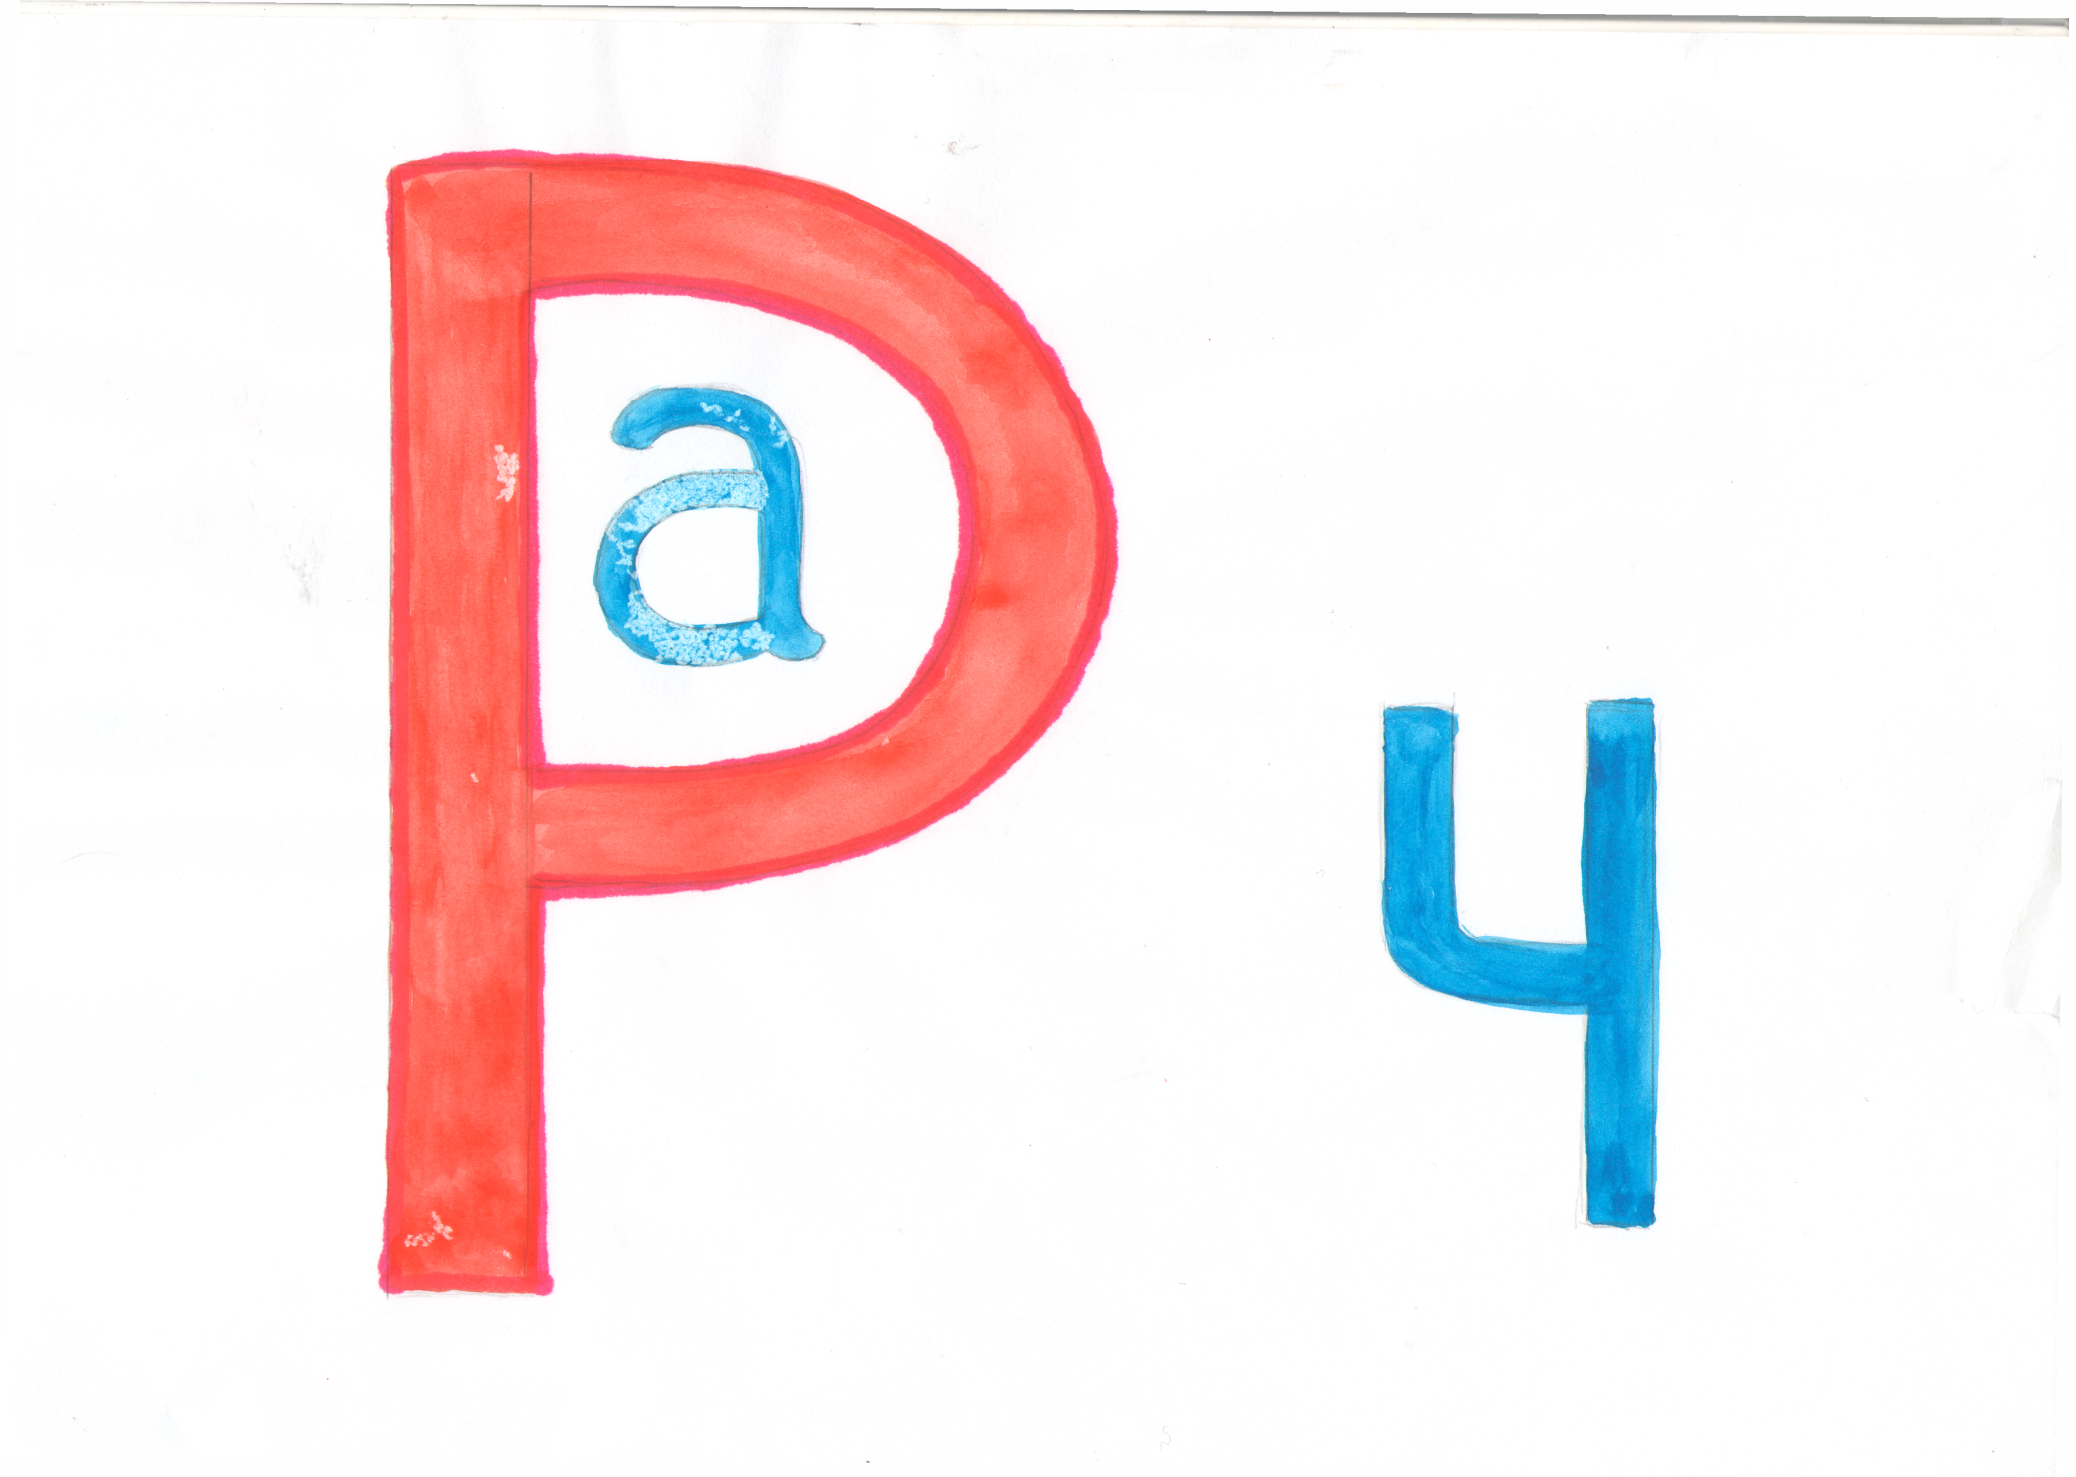 Ра ч